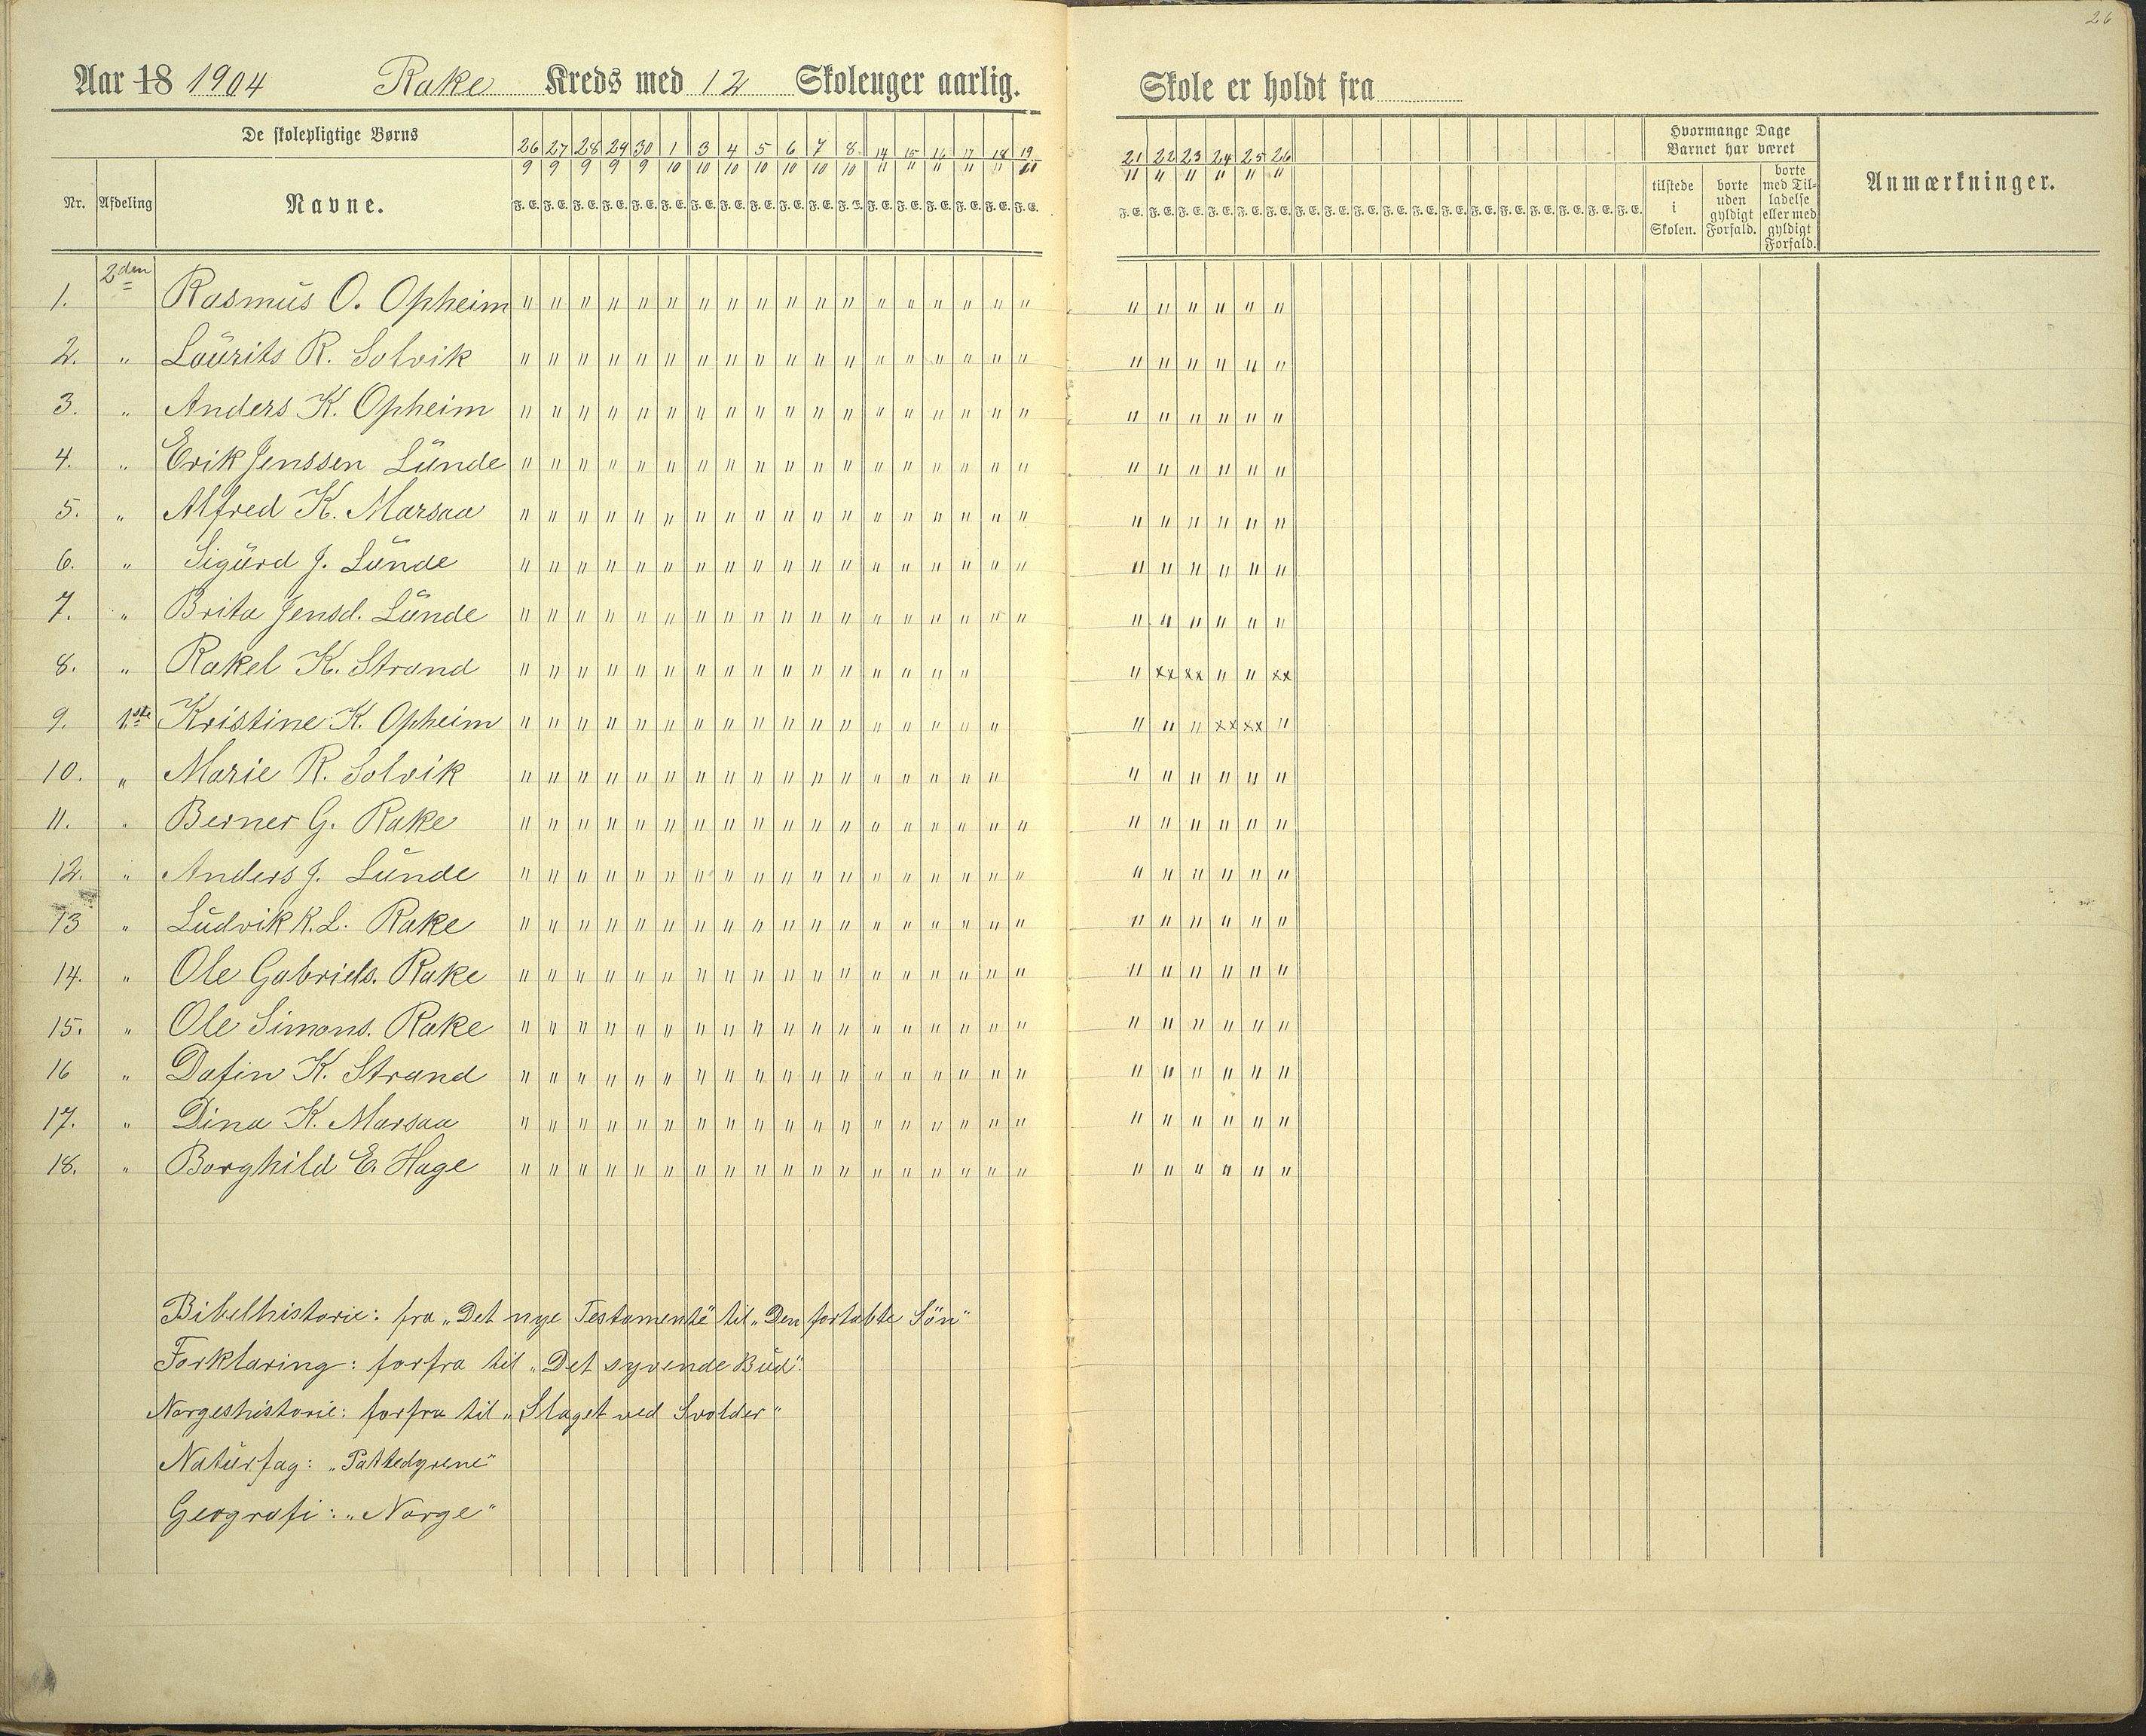 26
Aar 18 1904 Rake Kreds med 12 Skoleuger aarlig. Skole er holdt fra
De skolepligtige Børns 26 27 28 29 30 1 3 4 5 6 7 8 14 15 16 17 18 19 21 22 23 24 25 26 Hvormange Dage Barnet har været
9 9 9 9 9 10 10 10 10 10 10 10 11 11 11 11 11 11 11 11 11 11 11 11
Nr. Afdeling Navne. F. E. F. E. F. E. F. E. F. E. F. E. F. E. F. E. F. E. F. E. F. E. F. E. F. E. F. E. F. E. F. E. F. E. F. E. tilstede i Skolen. borte uden gyldigt Forfald. borte med Tilladelse eller med gyldigt Forfald. Anmærkninger.
1. 2den Rasmus O. Opheim " " " " " " " " " " " " " " " " " " " " " " " "
2. " Laurits R. Solvik " " " " " " " " " " " " " " " " " " " " " " " "
3. " Anders K. Opheim " " " " " " " " " " " " " " " " " " " " " " " "
4. " Erik Jenssen Lunde " " " " " " " " " " " " " " " " " " " " " " " "
5. " Alfred K. Marsaa " " " " " " " " " " " " " " " " " " " " " " " "
6. " Sigurd J. Lunde " " " " " " " " " " " " " " " " " " " " " " " "
7. " Brita Jensd. Lunde " " " " " " " " " " " " " " " " " " " " " " " "
8. " Rakel K. Strand " " " " " " " " " " " " " " " " " xx xx " " xx
9. 1ste Kristine K. Opheim " " " " " " " " " " " " " " " " " " " " xx xx "
10. " Marie R. Solvik " " " " " " " " " " " " " " " " " " " " " " "
11. " Berner G. Rake " " " " " " " " " " " " " " " " " " " " " " " "
12. " Anders J. Lunde " " " " " " " " " " " " " " " " " " " " " " " "
13 " Ludvik K. L. Rake " " " " " " " " " " " " " " " " " " " " " " " "
14. " Ole Gabriels. Rake " " " " " " " " " " " " " " " " " " " " " " " "
15. " Ole Simons. Rake " " " " " " " " " " " " " " " " " " " " " " " "
16 " Dafin K. Strand " " " " " " " " " " " " " " " " " " " " " " " "
17. " Dina K. Marsaa " " " " " " " " " " " " " " " " " " " " " " " "
18. " Borghild E. Hage " " " " " " " " " " " " " " " " " " " " " " " "
Bibelhistorie: fra "Det nye Testamente" til "Den fortabte Sön"
Forklaring: forfra til "Det syvende Bud".
Norgeshistorie: forfra til "Slaget ved Svolder"
Naturfag: "Pattedyrene"
Geografi: "Norge"